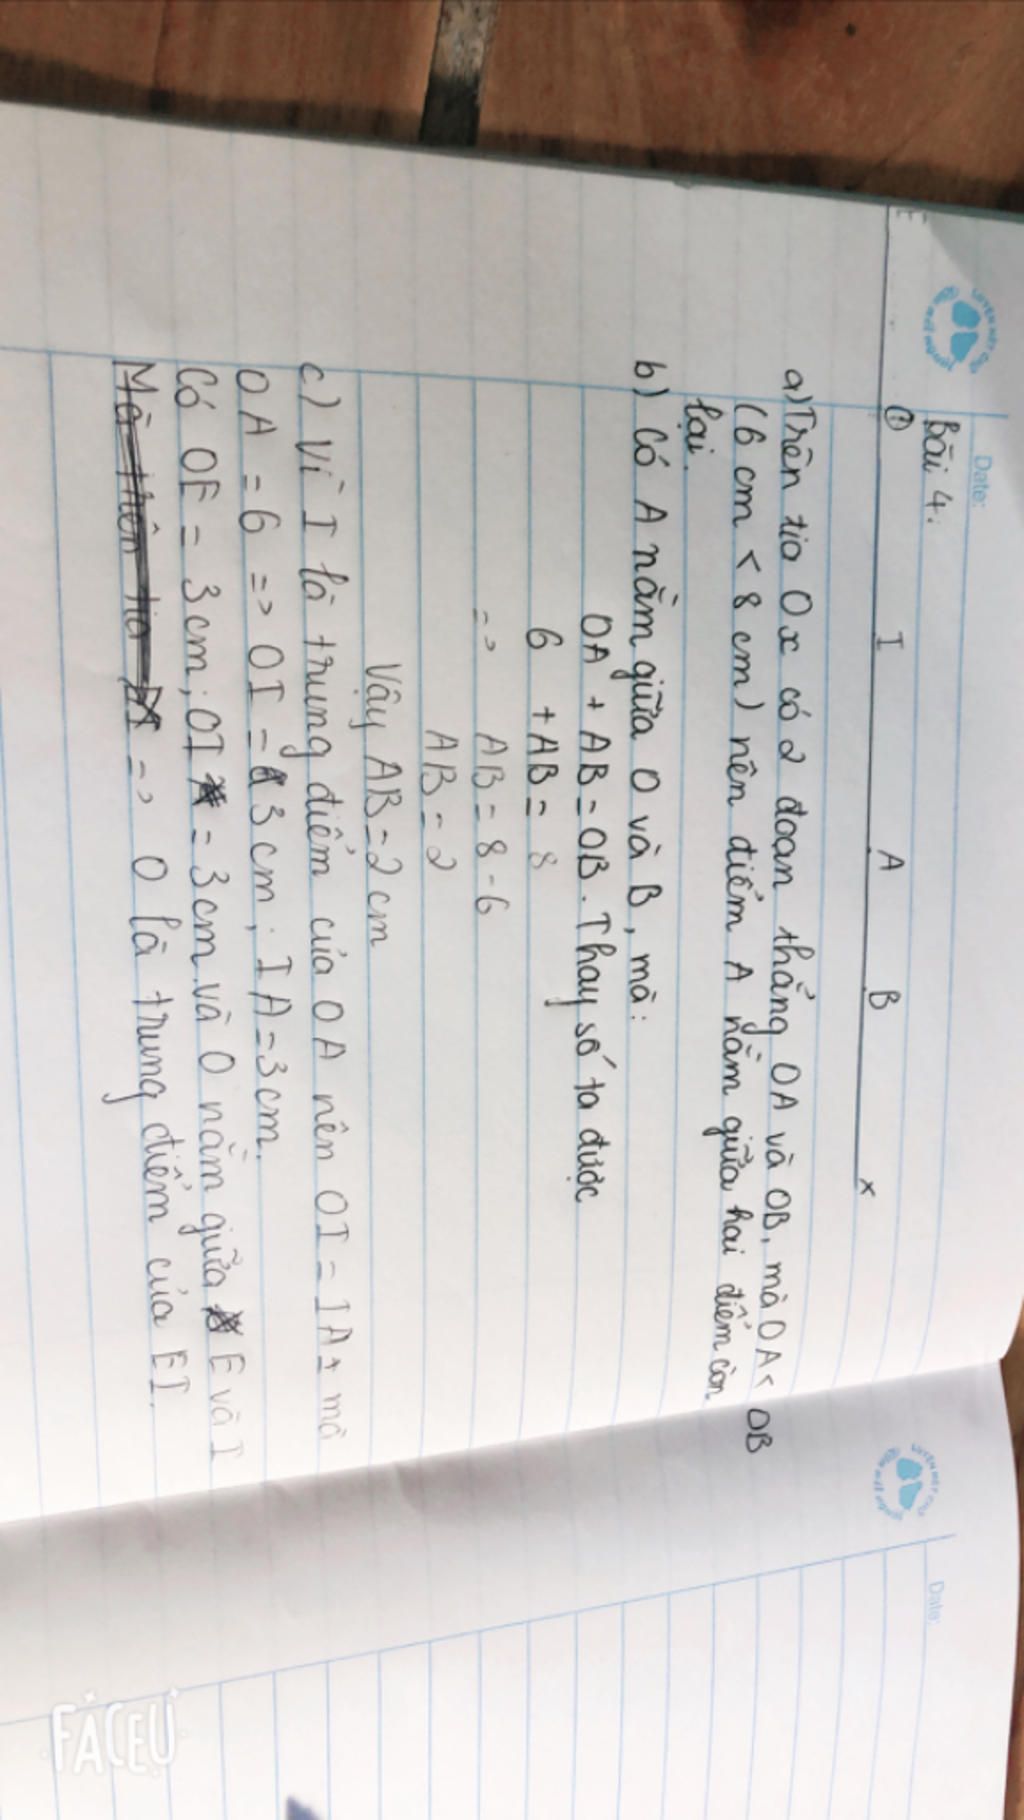 Date:
Bài 4:
E O I A B x
a) Trên tia Ox có 2 đoạn thẳng OA và OB, mà OA < OB
(6 cm < 8 cm) nên điểm A nằm giữa hai điểm còn
lại.
b) Có A nằm giữa O và B, mà:
OA + AB = OB. Thay số ta được
6 + AB = 8
=> AB = 8 - 6
AB = 2
Vậy AB = 2 cm
c) Vì I là trung điểm của OA nên OI = IA mà
OA = 6 => OI = 3 cm; IA = 3 cm.
Có OE = 3 cm; OI = 3 cm và O nằm giữa E và I
Mà trên tia => O là trung điểm của EI.
Date:
FACEU